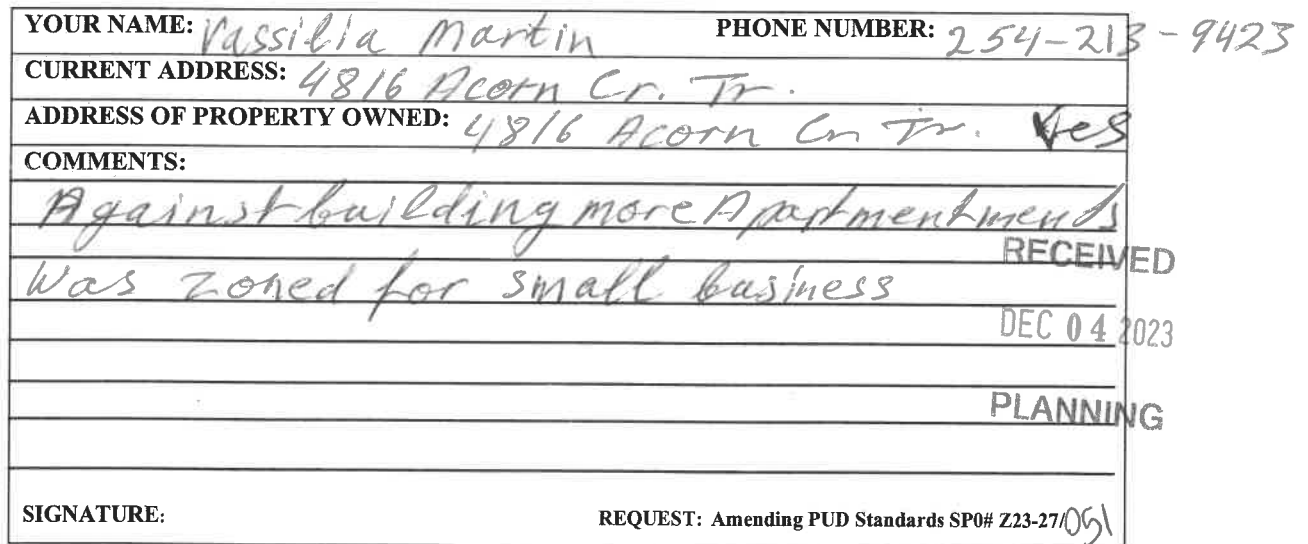 YOUR NAME: Vassilia Martin PHONE NUMBER: 254-213-9423
CURRENT ADDRESS: 4816 Acorn Cr. Tr.
ADDRESS OF PROPERTY OWNED: 4816 Acorn Cr Tr. Yes
COMMENTS:
Against building more Apartmentments
RECEIVED
Was zoned for small business
DEC 04 2023
PLANNING
SIGNATURE: REQUEST: Amending PUD Standards SP0# Z23-27/051